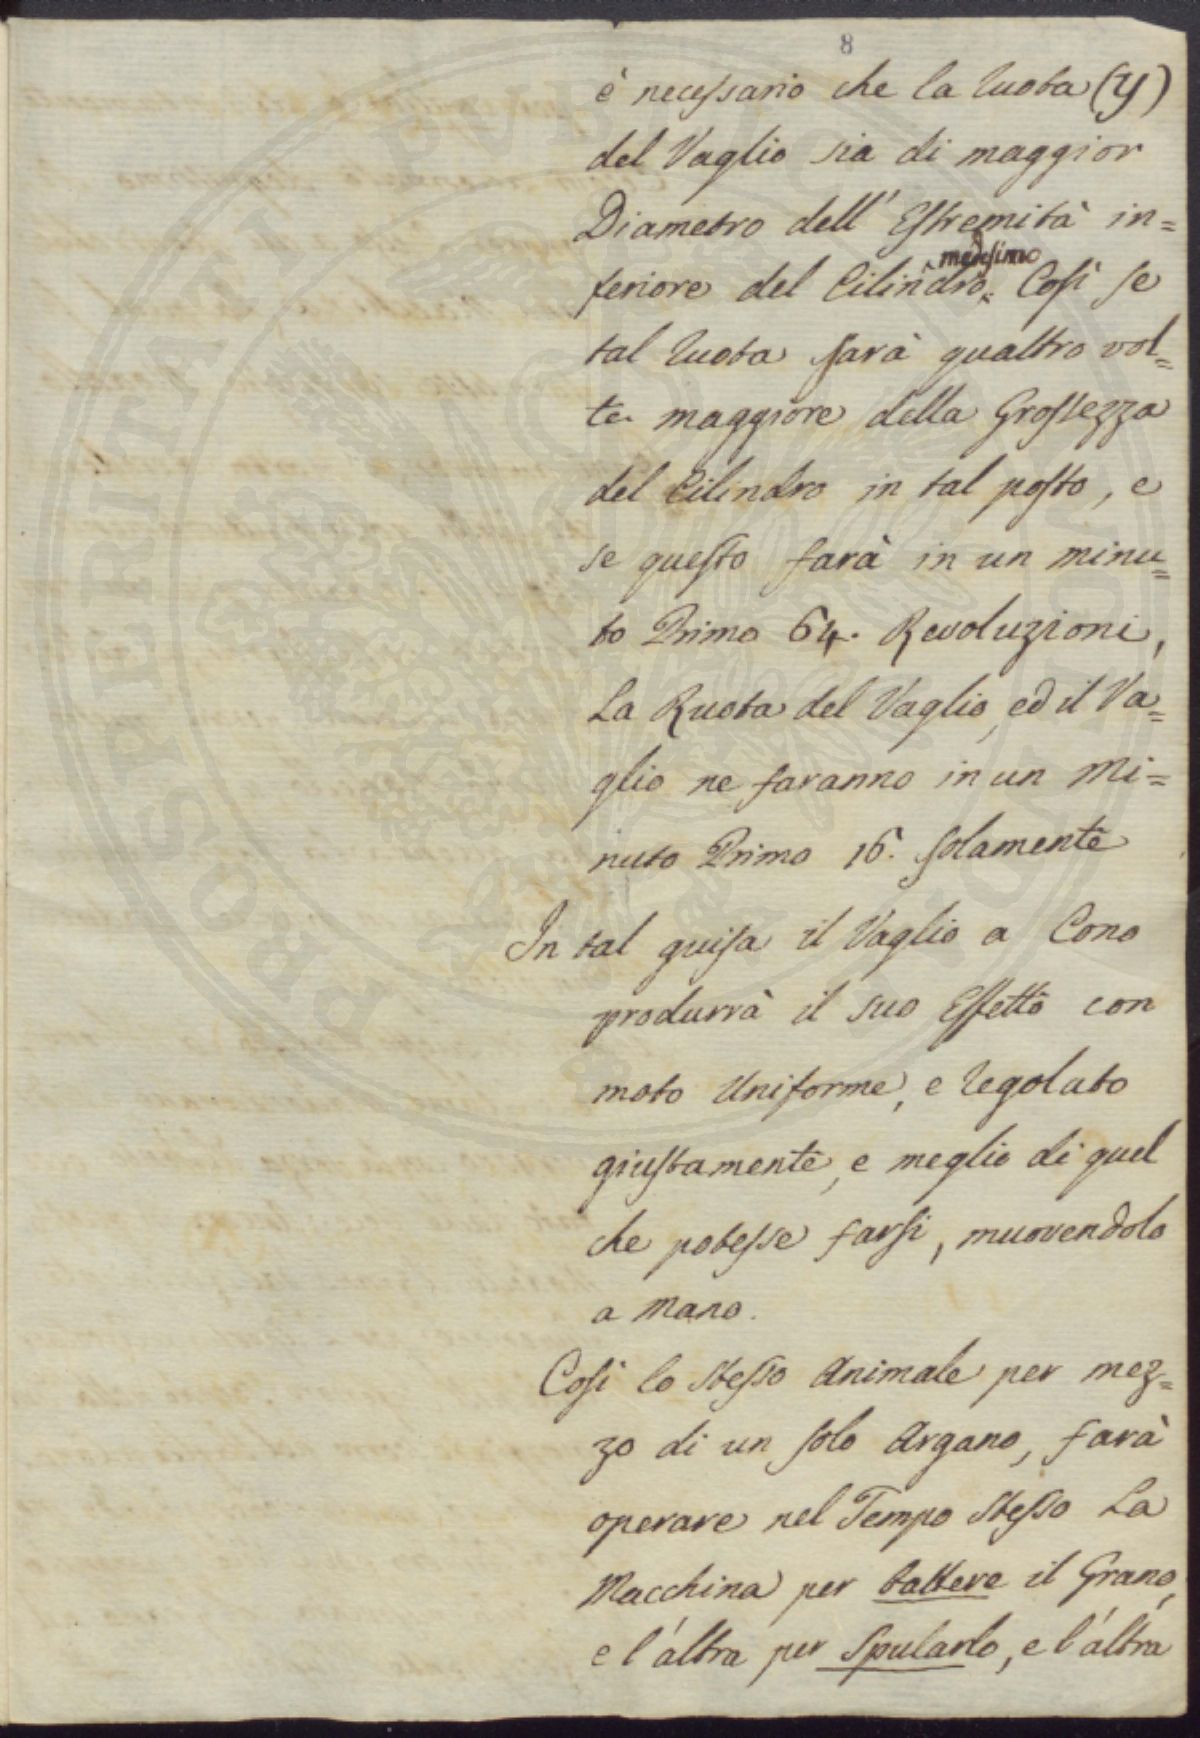 8
è necessario che la Ruota (y)
del Vaglio sia di maggior
Diametro dell' Estremità in=
feriore del Cilindro medesimo. Così se
tal Ruota sarà quattro vol=
te maggiore della Grossezza
del Cilindro in tal posto, e
se questo farà in un minu=
to Primo 64. Revoluzioni,
La Ruota del Vaglio, ed il Va=
glio ne faranno in un Mi=
nuto Primo 16. solamente
In tal guisa il Vaglio a Cono
produrrà il suo Effetto con
moto Uniforme, e Regolato
giustamente, e meglio di quel
che potesse farsi, muovendolo
a Mano.
Così lo stesso Animale per mez=
zo di un solo Argano, farà
operare nel Tempo stesso La
Macchina per battere il Grano,
e l'altra per Spularlo, e l'altra
PROSPERITATI PUBLICAE